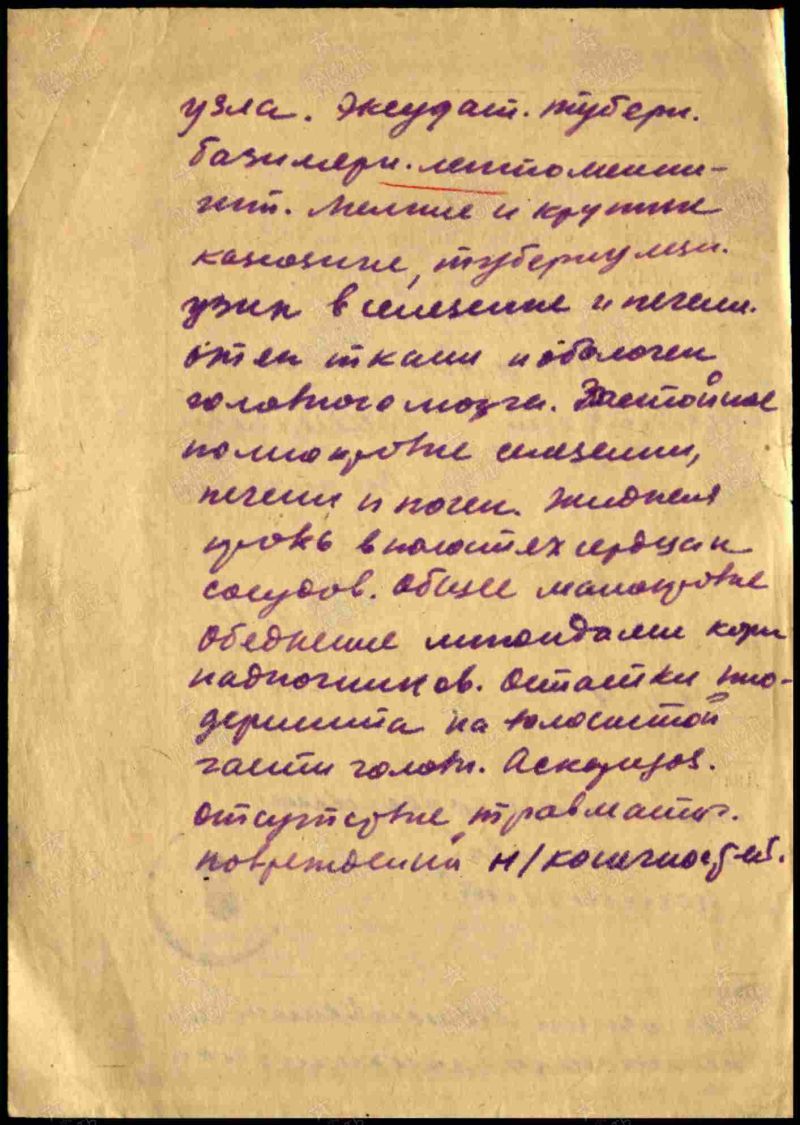 узла. Эксудат. тубери.
базилярн. лептоменин-
гит. Мелкие и крупные
казеозные, туберкулезн.
узлы в селезенке и печени.
отек ткани и оболочек
головного мозга. Застойное
полнокровие селезенки,
печени и почек. Жидкая
кровь в полостях сердца и
сосудов. Общее малокровие
Обеднение липоидами коры
надпочечников. Остатки пио-
дермита на волосистой
части головы. Аскаридоз.
Отсутствие травматич.
повреждений н/конечностей.